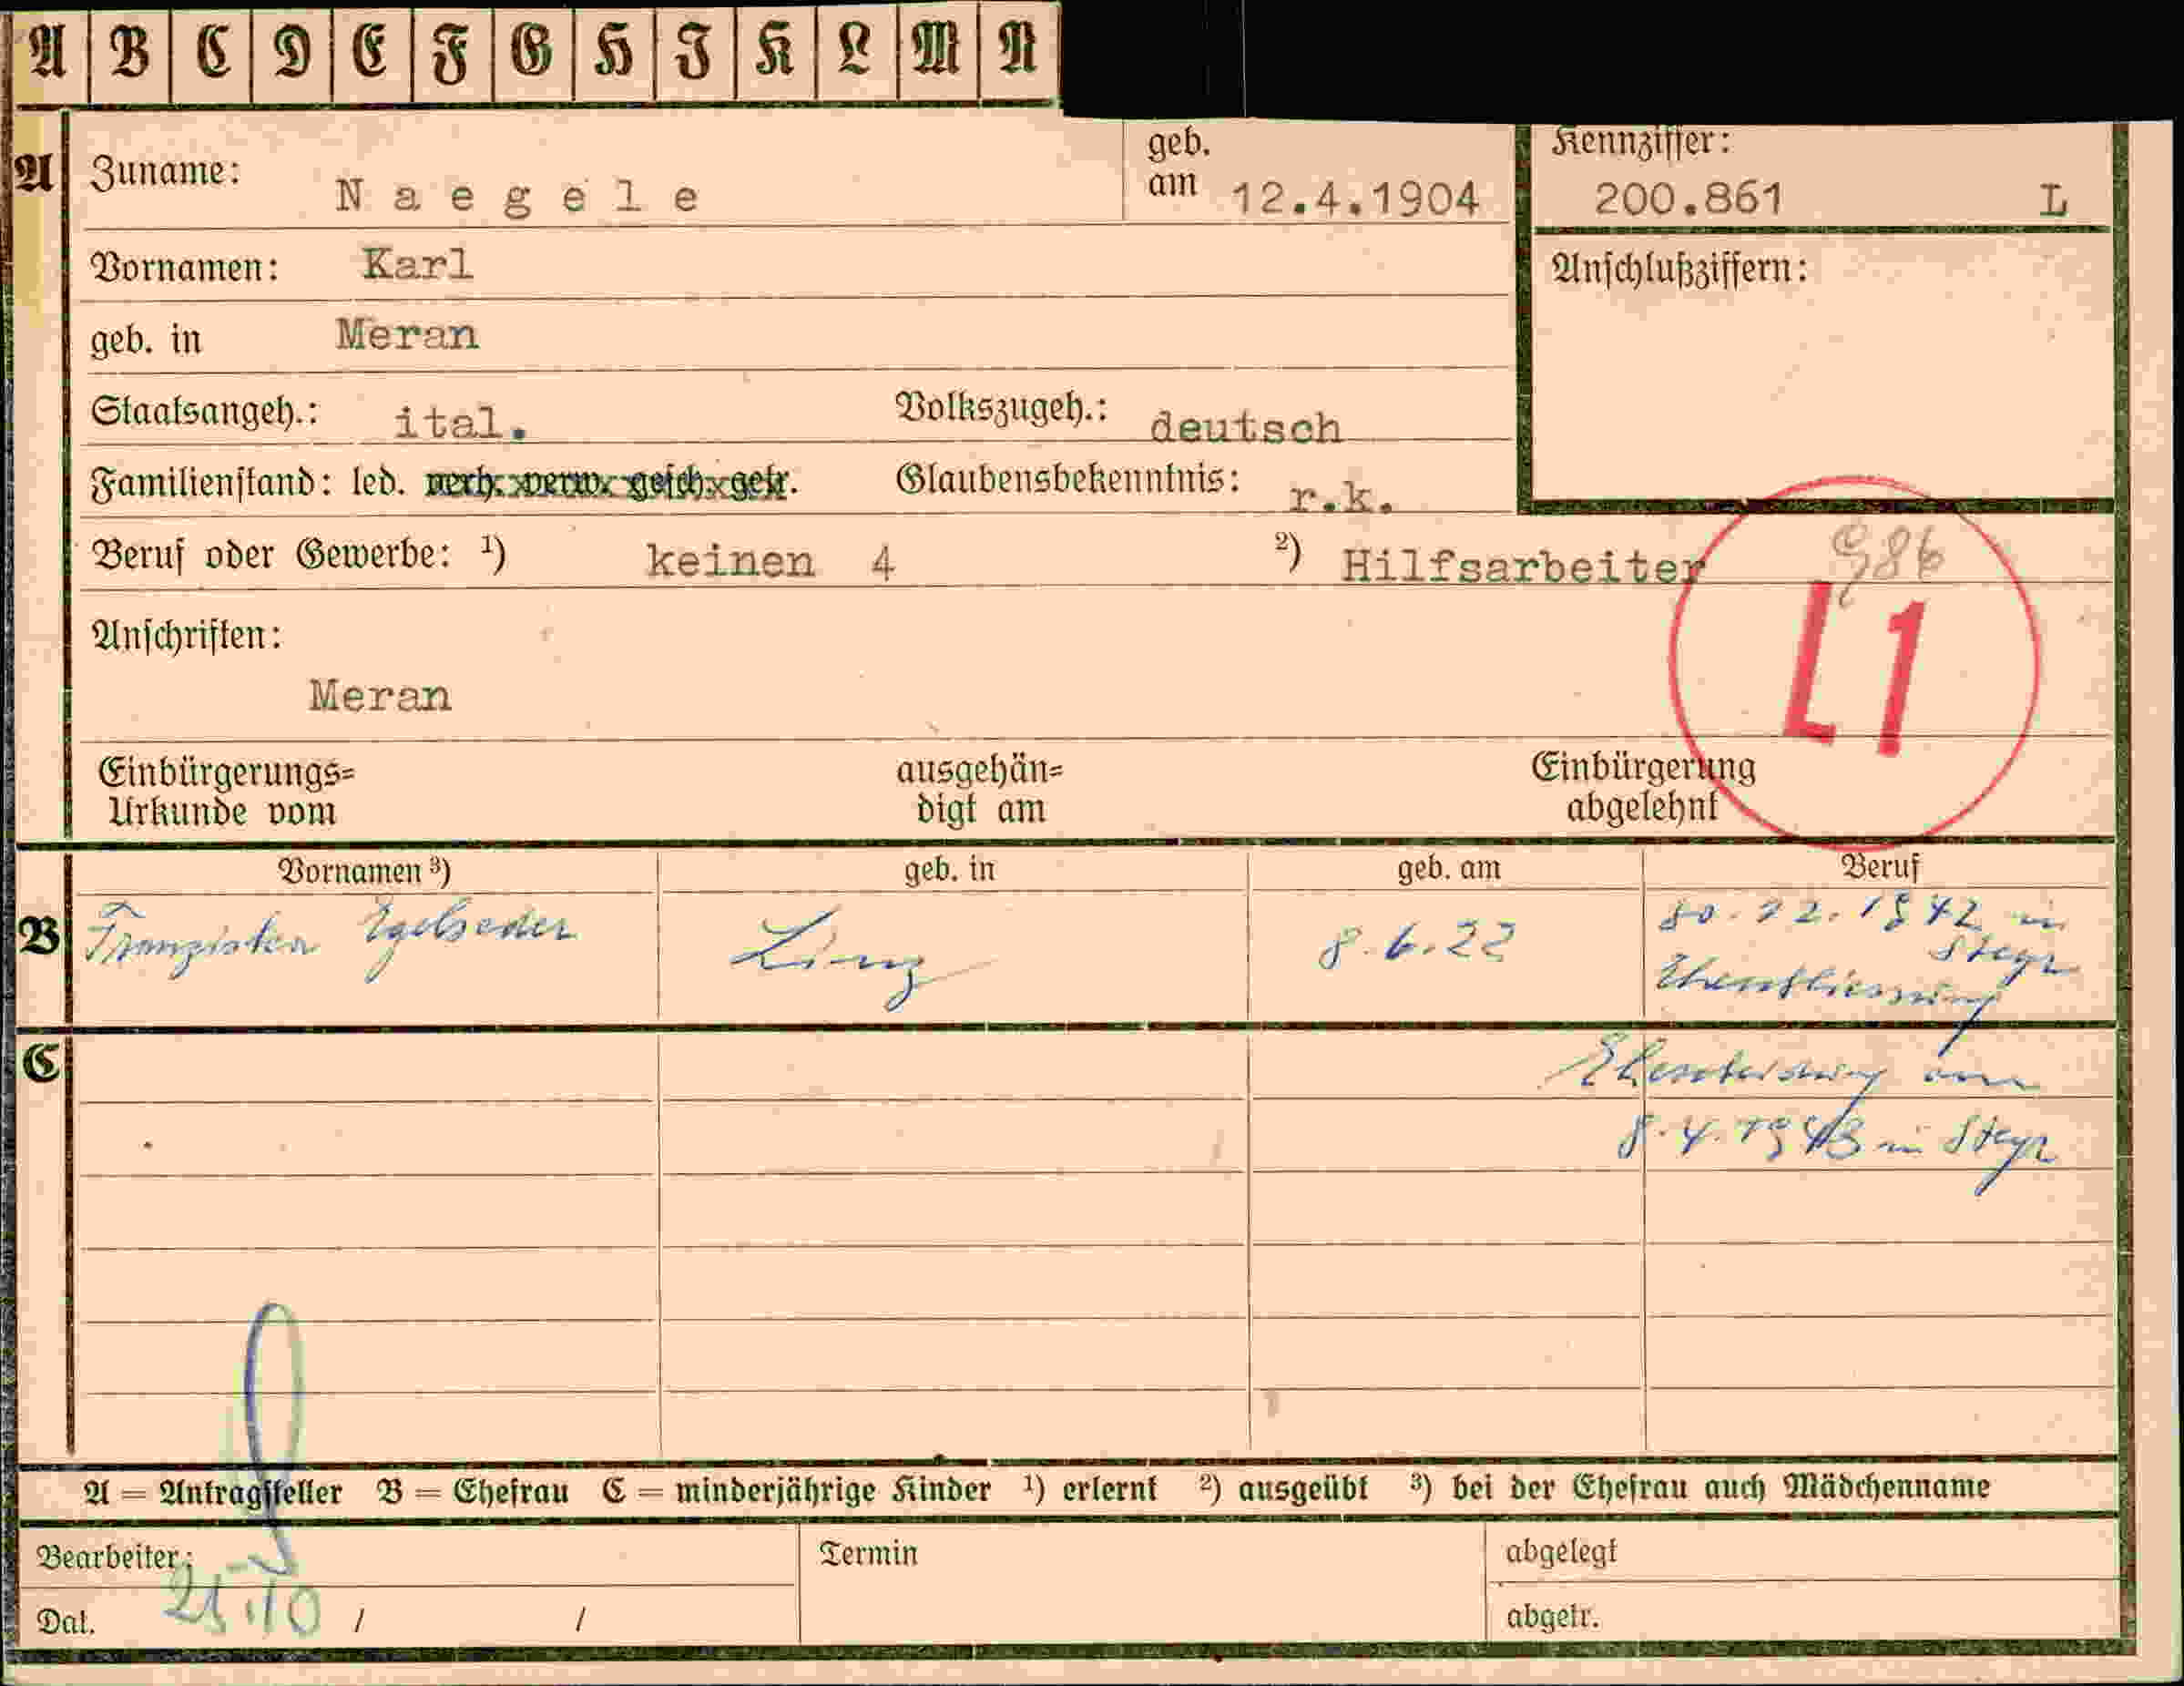 A B C D E F G H I K L M N
A Zuname: Naegele geb. am 12.4.1904 Kennziffer: 200.861 L
Vornamen: Karl Anschlußziffern:
geb. in Meran
Staatsangeh.: ital. Volkszugeh.: deutsch
Familienstand: led. verh. verw. gesch. getr. Glaubensbekenntnis: r.k.
Beruf oder Gewerbe: ¹) keinen 4 ²) Hilfsarbeiter
L1
Anschriften:
Meran
Einbürgerungs= ausgehän= Einbürgerung
Urkunde vom digt am abgelehnt
Vornamen ³) geb. in geb. am Beruf
B Franziska Egelseder Linz 8.6.22 12.1942 in
Steyr
Eheschliessung
C Ehescheidung am
8.4.1943 in Steyr
A = Antragsteller B = Ehefrau C = minderjährige Kinder ¹) erlernt ²) ausgeübt ³) bei der Ehefrau auch Mädchenname
Bearbeiter: Termin abgelegt
Dat. / / abgetr.